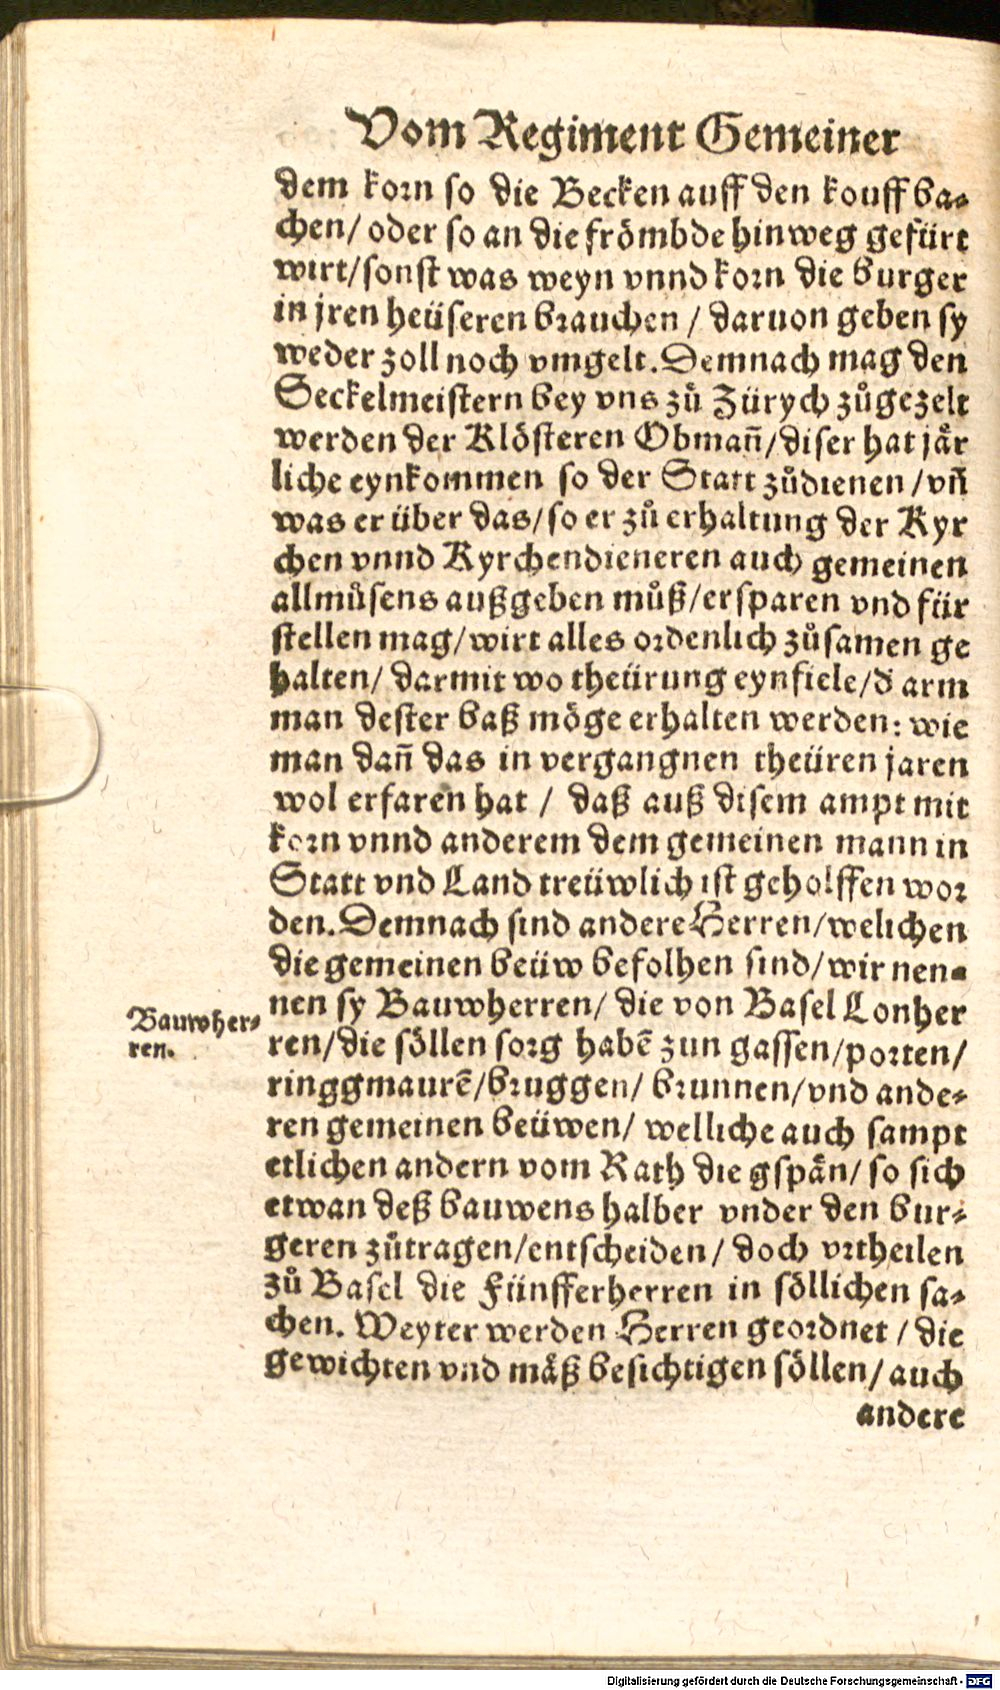 Vom Regiment Gemeiner
dem korn so die Becken auff den kouff ba-
chen/ oder so an die frömbde hinweg gefürt
wirt/sonst was weyn vnnd korn die burger
in jren heüseren brauchen / daruon geben sy
weder zoll noch vmgelt. Demnach mag den
Seckelmeistern bey vns zů Zürych zůgezelt
werden der Klösteren Obmañ/diser hat jår
liche eynkommen so der Statt zůdienen /vñ
was er über das/so er zů erhaltung der Kyr
chen vnnd Kyrchendieneren auch gemeinen
allmůsens außgeben můß/ersparen vnd für
stellen mag/wirt alles ordenlich zůsamen ge
halten/ darmit wo theürung eynfiele/d̃ arm
man dester baß möge erhalten werden: wie
man dañ das in vergangnen theüren jaren
wol erfaren hat / daß auß disem ampt mit
korn vnnd anderem dem gemeinen mann in
Statt vnd Land treüwlich ist geholffen wor
den. Demnach sind andere Herren/welichen
die gemeinen beüw befolhen sind/wir nen-
nen sy Bauwherren/ die von Basel Lonher
Bauwher-
ren.
ren/die söllen sorg habẽ zun gassen/porten/
ringgmaurẽ/bruggen/ brunnen/vnd ande-
ren gemeinen beüwen/ welliche auch sampt
etlichen andern vom Rath die gspån/ so sich
etwan deß bauwens halber vnder den bur-
geren zůtragen/entscheiden/ doch vrtheilen
zů Basel die Fünfferherren in söllichen sa-
chen. Weyter werden Herren geordnet / die
gewichten vnd måß besichtigen söllen/ auch
andere
Digitalisierung gefördert durch die Deutsche Forschungsgemeinschaft - DFG